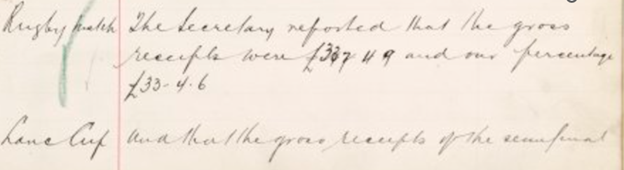 Rugby match The Secretary reported that the gross
receipts were £337 4 9 and our percentage
£33-4-6
Lanc Cup and that the gross receipts of the semifinal